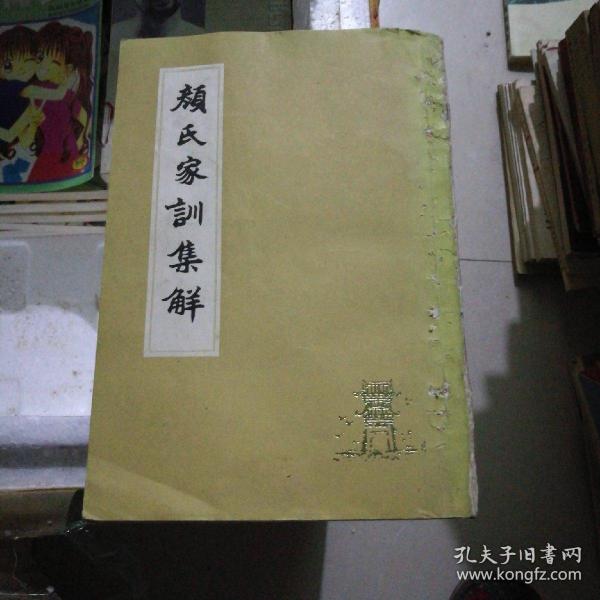 顔氏家訓集解
孔夫子旧書网
www.kongfz.com